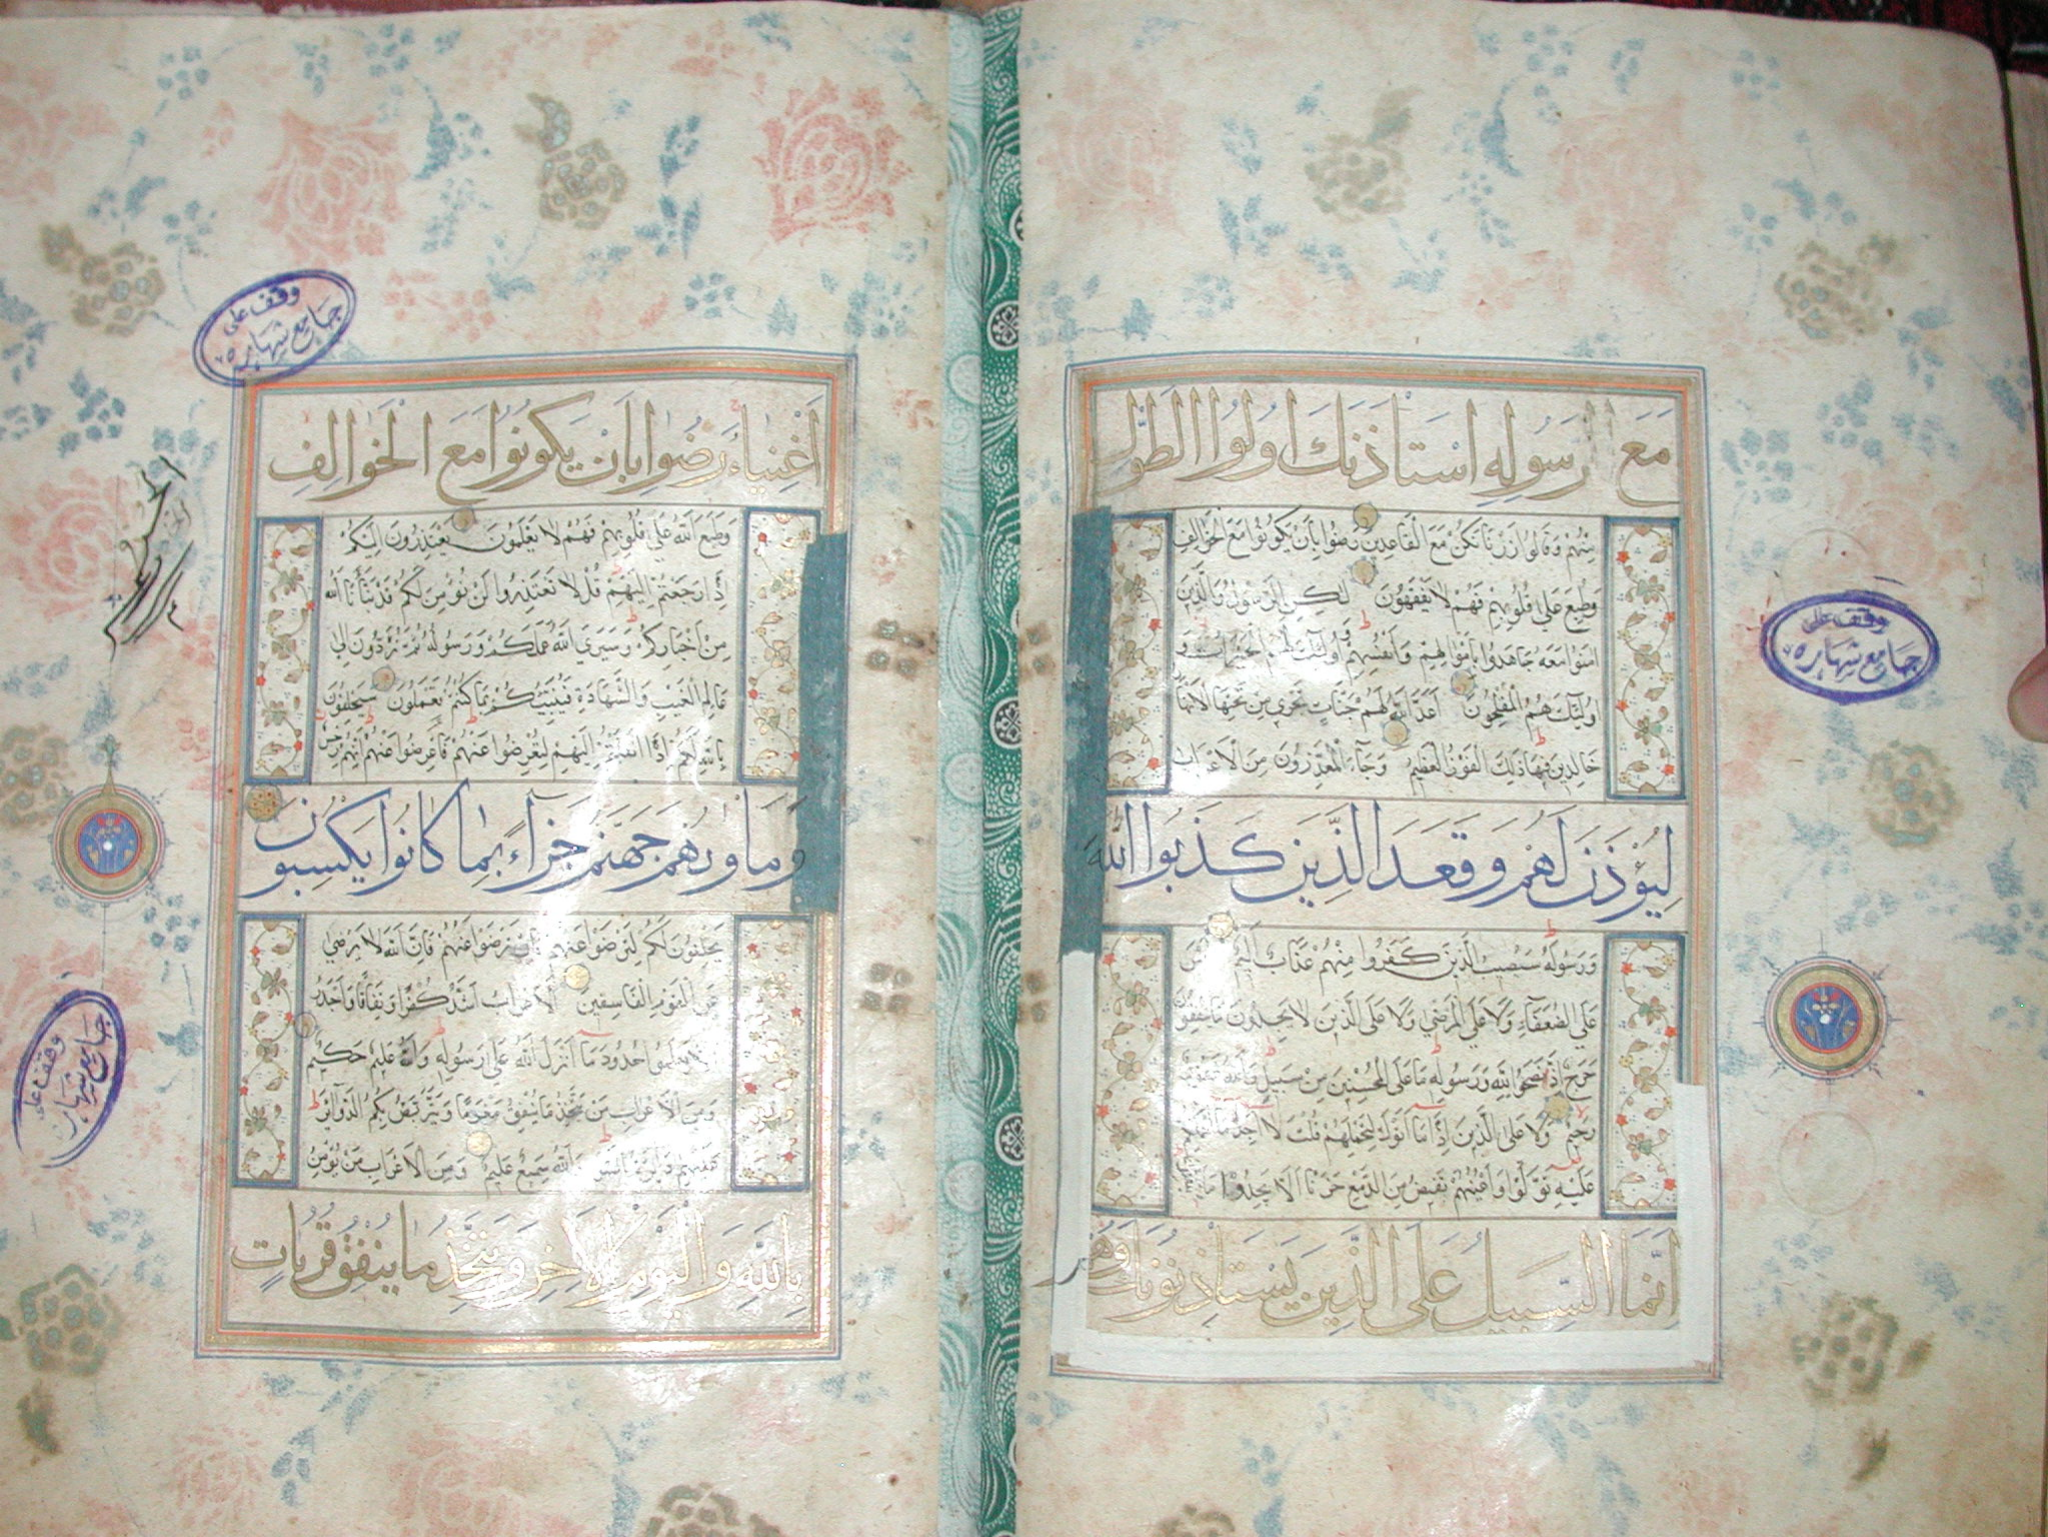 مَعَ رَسُولِهِ اسْتَأْذَنَكَ اُولُوا الطَّوْلِ
مِنْهُمْ وَقَالُوا ذَرْنَا نَكُنْ مَعَ الْقَاعِدِينَ رَضُوا بِأَنْ يَكُونُوا مَعَ الْخَوَالِفِ
وَطُبِعَ عَلَى قُلُوبِهِمْ فَهُمْ لَا يَفْقَهُونَ لَكِنِ الرَّسُولُ وَالَّذِينَ
امَنُوا مَعَهُ جَاهَدُوا بِأَمْوَالِهِمْ وَأَنْفُسِهِمْ وَأُولَئِكَ لَهُمُ الْخَيْرَاتُ وَ
اُولَئِكَ هُمُ الْمُفْلِحُونَ أَعَدَّ اللَّهُ لَهُمْ جَنَّاتٍ تَجْرِي مِنْ تَحْتِهَا الْأَنْهَارُ
خَالِدِينَ فِيهَا ذَلِكَ الْفَوْزُ الْعَظِيمُ وَجَاءَ الْمُعَذِّرُونَ مِنَ الْأَعْرَابِ
لِيُؤْذَنَ لَهُمْ وَقَعَدَ الَّذِينَ كَذَبُوا اللَّهَ
وَرَسُولَهُ سَيُصِيبُ الَّذِينَ كَفَرُوا مِنْهُمْ عَذَابٌ أَلِيمٌ لَيْسَ
عَلَى الضُّعَفَاءِ وَلَا عَلَى الْمَرْضَى وَلَا عَلَى الَّذِينَ لَا يَجِدُونَ مَا يُنْفِقُونَ
حَرَجٌ إِذَا نَصَحُوا لِلَّهِ وَرَسُولِهِ مَا عَلَى الْمُحْسِنِينَ مِنْ سَبِيلٍ وَاللَّهُ غَفُورٌ
رَحِيمٌ وَلَا عَلَى الَّذِينَ إِذَا مَا أَتَوْكَ لِتَحْمِلَهُمْ قُلْتَ لَا أَجِدُ مَا أَحْمِلُكُمْ
عَلَيْهِ تَوَلَّوْا وَأَعْيُنُهُمْ تَفِيضُ مِنَ الدَّمْعِ حَزَنًا أَلَّا يَجِدُوا مَا يُنْفِقُونَ
إِنَّمَا السَّبِيلُ عَلَى الَّذِينَ يَسْتَأْذِنُونَكَ وَهُمْ
وقف على
جامع شهاره
أَغْنِيَاءُ رَضُوا بِأَنْ يَكُونُوا مَعَ الْخَوَالِفِ
وَطَبَعَ اللَّهُ عَلَى قُلُوبِهِمْ فَهُمْ لَا يَعْلَمُونَ يَعْتَذِرُونَ إِلَيْكُمْ
إِذَا رَجَعْتُمْ إِلَيْهِمْ قُلْ لَا تَعْتَذِرُوا لَنْ نُؤْمِنَ لَكُمْ قَدْ نَبَّأَنَا اللَّهُ
مِنْ أَخْبَارِكُمْ وَسَيَرَى اللَّهُ عَمَلَكُمْ وَرَسُولُهُ ثُمَّ تُرَدُّونَ إِلَى
عَالِمِ الْغَيْبِ وَالشَّهَادَةِ فَيُنَبِّئُكُمْ بِمَا كُنْتُمْ تَعْمَلُونَ سَيَحْلِفُونَ
بِاللَّهِ لَكُمْ إِذَا انْقَلَبْتُمْ إِلَيْهِمْ لِتُعْرِضُوا عَنْهُمْ فَأَعْرِضُوا عَنْهُمْ إِنَّهُمْ رِجْسٌ
وَمَأْوٰيهُمْ جَهَنَّمُ جَزَاءً بِمَا كَانُوا يَكْسِبُونَ
يَحْلِفُونَ لَكُمْ لِتَرْضَوْا عَنْهُمْ فَإِنْ تَرْضَوْا عَنْهُمْ فَإِنَّ اللَّهَ لَا يَرْضَى
عَنِ الْقَوْمِ الْفَاسِقِينَ الْأَعْرَابُ أَشَدُّ كُفْرًا وَنِفَاقًا وَأَجْدَرُ
يَعْلَمُوا حُدُودَ مَا أَنْزَلَ اللَّهُ عَلَى رَسُولِهِ وَاللَّهُ عَلِيمٌ حَكِيمٌ
وَمِنَ الْأَعْرَابِ مَنْ يَتَّخِذُ مَا يُنْفِقُ مَغْرَمًا وَيَتَرَبَّصُ بِكُمُ الدَّوَائِرَ
عَلَيْهِمْ دَائِرَةُ السَّوْءِ وَاللَّهُ سَمِيعٌ عَلِيمٌ وَمِنَ الْأَعْرَابِ مَنْ يُؤْمِنُ
بِاللَّهِ وَالْيَوْمِ الْآخِرِ وَيَتَّخِذُ مَا يُنْفِقُ قُرُبَاتٍ
وقف على
جامع شهاره
وقف على
جامع شهاره